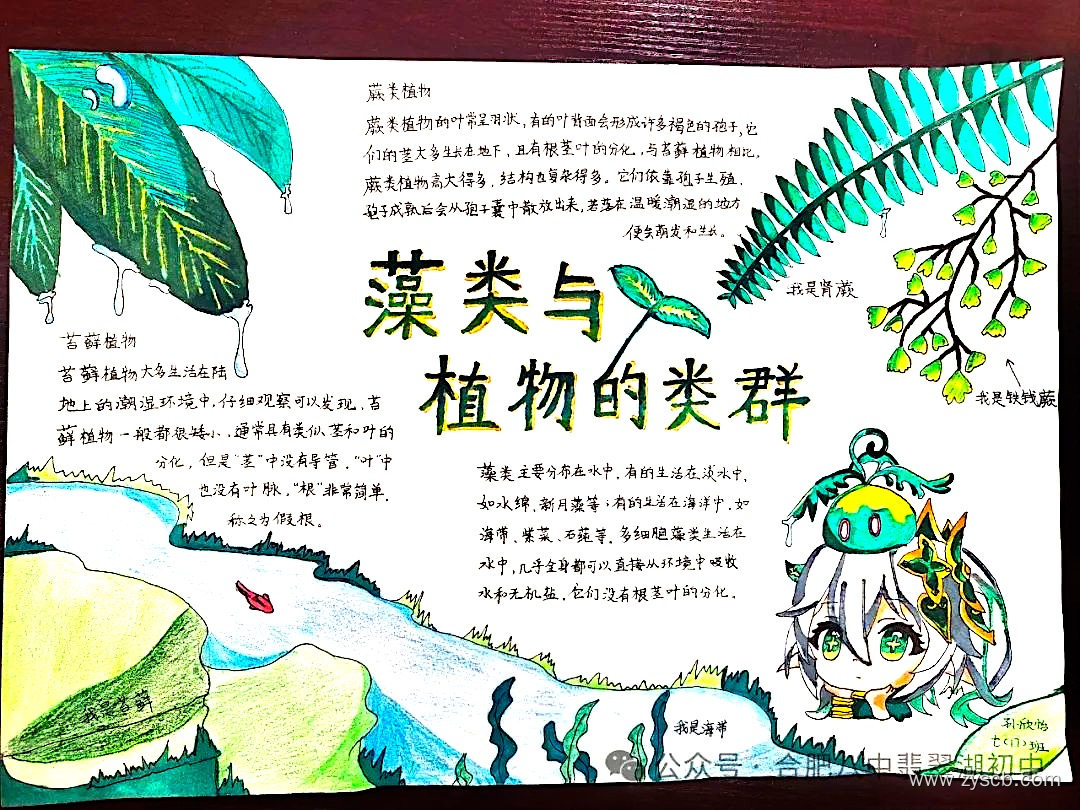 蕨类植物
蕨类植物的叶常呈羽状，有的叶背面会形成许多褐色的孢子，它
们的茎大多生长在地下，且有根茎叶的分化，与苔藓植物相比，
蕨类植物高大得多，结构也复杂得多。它们依靠孢子生殖，
孢子成熟后会从孢子囊中散放出来，若落在温暖潮湿的地方
便会萌发和生长。
藻类与
植物的类群
我是肾蕨
我是铁钱蕨
苔藓植物
苔藓植物大多生活在陆
地上的潮湿环境中，仔细观察可以发现，苔
藓植物一般都很矮小，通常具有类似茎和叶的
分化，但是“茎”中没有导管，“叶”中
也没有叶脉，“根”非常简单，
称之为假根。
藻类主要分布在水中，有的生活在淡水中，
如水绵、新月藻等；有的生活在海洋中，如
海带、紫菜、石莼等。多细胞藻类生活在
水中，几乎全身都可以直接从环境中吸收
水和无机盐，它们没有根茎叶的分化。
我是苔藓
我是海带
孙欣怡
七(17)班
公众号·合肥六中翡翠湖初中
www.zyscb.com